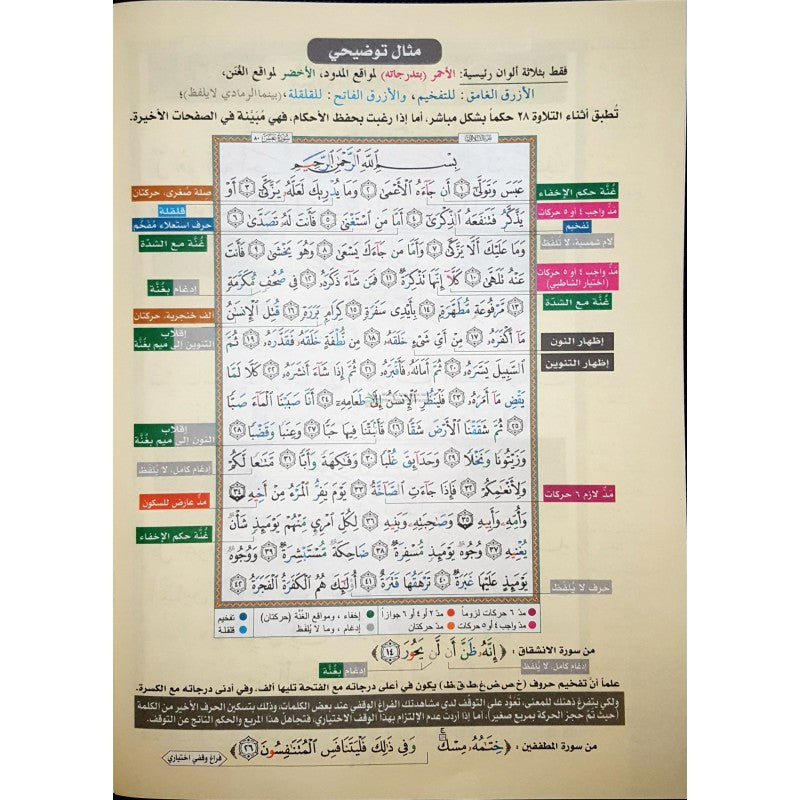 مثال توضيحي
فقط بثلاثة ألوان رئيسية: الأحمر (بتدرجاته) لمواقع المدود، الأخضر لمواقع الغُنَن،
الأزرق الغامق: للتفخيم، والأزرق الفاتح: للقلقلة، (بينما الرمادي لا يلفظ)؛
تُطبق أثناء التلاوة ٢٨ حكماً بشكل مباشر، أما إذا رغبت بحفظ الأحكام، فهي مُبَيَّنة في الصفحات الأخيرة.
سُورَةُ عَبَسَ ٨٠
بِسْمِ اللَّهِ الرَّحْمَٰنِ الرَّحِيمِ
عَبَسَ وَتَوَلَّىٰٓ ١ أَن جَآءَهُ ٱلْأَعْمَىٰ ٢ وَمَا يُدْرِيكَ لَعَلَّهُۥ يَزَّكَّىٰٓ ٣ أَوْ
يَذَّكَّرُ فَتَنفَعَهُ ٱلذِّكْرَىٰٓ ٤ أَمَّا مَنِ ٱسْتَغْنَىٰ ٥ فَأَنتَ لَهُۥ تَصَدَّىٰ ٦
وَمَا عَلَيْكَ أَلَّا يَزَّكَّىٰ ٧ وَأَمَّا مَن جَآءَكَ يَسْعَىٰ ٨ وَهُوَ يَخْشَىٰ ٩ فَأَنتَ
عَنْهُ تَلَهَّىٰ ١٠ كَلَّآ إِنَّهَا تَذْكِرَةٌ ١١ فَمَن شَآءَ ذَكَرَهُۥ ١٢ فِى صُحُفٍ مُّكَرَّمَةٍ
١٣ مَّرْفُوعَةٍ مُّطَهَّرَةٍۭ ١٤ بِأَيْدِى سَفَرَةٍ ١٥ كِرَامٍۭ بَرَرَةٍ ١٦ قُتِلَ ٱلْإِنسَٰنُ
مَآ أَكْفَرَهُۥ ١٧ مِنْ أَىِّ شَىْءٍ خَلَقَهُۥ ١٨ مِن نُّطْفَةٍ خَلَقَهُۥ فَقَدَّرَهُۥ ١٩ ثُمَّ
ٱلسَّبِيلَ يَسَّرَهُۥ ٢٠ ثُمَّ أَمَاتَهُۥ فَأَقْبَرَهُۥ ٢١ ثُمَّ إِذَا شَآءَ أَنشَرَهُۥ ٢٢ كَلَّا لَمَّا
يَقْضِ مَآ أَمَرَهُۥ ٢٣ فَلْيَنظُرِ ٱلْإِنسَٰنُ إِلَىٰ طَعَامِهِۦٓ ٢٤ أَنَّا صَبَبْنَا ٱلْمَآءَ صَبًّا
٢٥ ثُمَّ شَقَقْنَا ٱلْأَرْضَ شَقًّا ٢٦ فَأَنۢبَتْنَا فِيهَا حَبًّا ٢٧ وَعِنَبًا وَقَضْبًا ٢٨
وَزَيْتُونًا وَنَخْلًا ٢٩ وَحَدَآئِقَ غُلْبًا ٣٠ وَفَٰكِهَةً وَأَبًّا ٣١ مَّتَٰعًا لَّكُمْ
وَلِأَنْعَٰمِكُمْ ٣٢ فَإِذَا جَآءَتِ ٱلصَّآخَّةُ ٣٣ يَوْمَ يَفِرُّ ٱلْمَرْءُ مِنْ أَخِيهِ ٣٤
وَأُمِّهِۦ وَأَبِيهِ ٣٥ وَصَٰحِبَتِهِۦ وَبَنِيهِ ٣٦ لِكُلِّ ٱمْرِئٍ مِّنْهُمْ يَوْمَئِذٍ شَأْنٌ
يُغْنِيهِ ٣٧ وُجُوهٌ يَوْمَئِذٍ مُّسْفِرَةٌ ٣٨ ضَاحِكَةٌ مُّسْتَبْشِرَةٌ ٣٩ وَوُجُوهٌ
يَوْمَئِذٍ عَلَيْهَا غَبَرَةٌ ٤٠ تَرْهَقُهَا قَتَرَةٌ ٤١ أُو۟لَٰٓئِكَ هُمُ ٱلْكَفَرَةُ ٱلْفَجَرَةُ ٤٢
غُنَّة حكم الإخفاء
مدّ واجب ٤ أو ٥ حركات
تفخيم
لام شمسية، لا تلفظ
مدّ واجب ٤ أو ٥ حركات
(اختيار الشاطبي)
غُنَّة مع الشدّة
إظهار النون
إظهار التنوين
مدّ لازم ٦ حركات
حرف لا يُلفظ
صلة صُغرى، حركتان
قلقلة
حرف استعلاء مُفخَّم
غُنَّة مع الشدّة
إدغام بغُنَّة
ألف خنجرية، حركتان
إقلاب
التنوين إلى ميم بغُنَّة
إقلاب
النون إلى ميم بغُنَّة
إدغام كامل، لا يُلفظ
مدّ عارض للسكون
غُنَّة حكم الإخفاء
مدّ ٦ حركات لزوماً
مدّ ٢ أو ٤ أو ٦ جوازاً
إخفاء، ومواقع الغُنَّة (حركتان)
تفخيم
مدّ واجب ٤ أو ٥ حركات
مدّ حركتان
إدغام، وما لا يُلفظ
قلقلة
من سورة الانشقاق: ﴿إِنَّهُۥ ظَنَّ أَن لَّن يَحُورَ ١٤﴾
إدغام كامل، لا يُلفظ
إدغام بغُنَّة
علماً أنّ تفخيم حروف (خ.ص.ض.غ.ط.ق.ظ) يكون في أعلى درجاته مع الفتحة تليها ألف، وفي أدنى درجاته مع الكسرة.
ولكي يتفرغ ذهنك للمعنى، تعوَّد على التوقف لدى مشاهدتك الفراغ الوقفي عند بعض الكلمات، وذلك بتسكين الحرف الأخير من الكلمة
(حيث تمّ حجز الحركة بمربع صغير)، أما إذا أردت عدم الإلتزام بهذا الوقف الاختياري، فتجاهل هذا المربع والحكم الناتج عن التوقف.
من سورة المطففين: ﴿خِتَٰمُهُۥ مِسْكٌ وَفِى ذَٰلِكَ فَلْيَتَنَافَسِ ٱلْمُتَنَٰفِسُونَ ٢٦﴾
فراغ وقفي اختياري